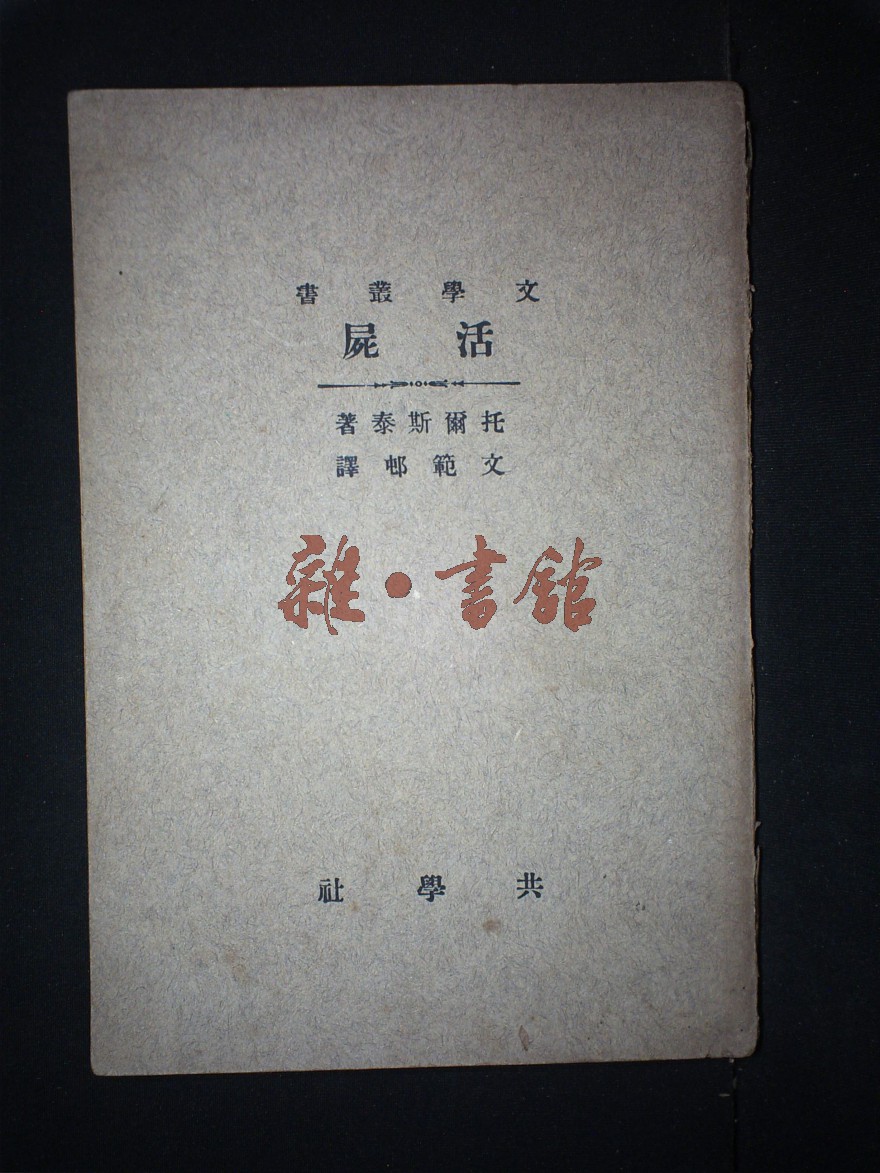 文學叢書
活屍
托爾斯泰著
文範邨譯
雜·書館
共學社